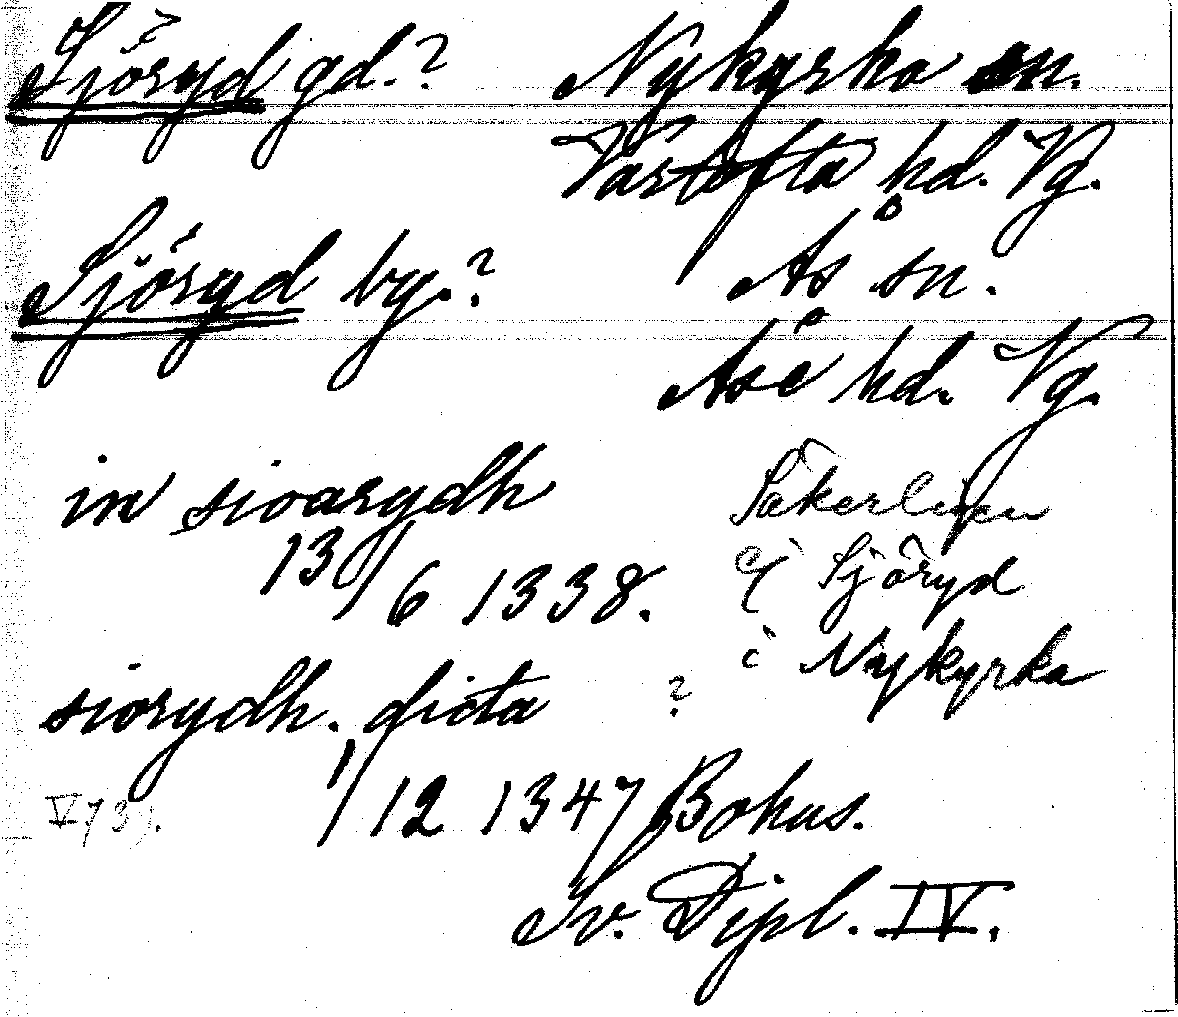 Sjöryd gd.? Nykyrko sn.
Vartofta hd. Vg.
Sjöryd by.? Ås sn.
Åse hd. Vg.
in sioarydh Säkerligen
13/6 1338. ej Sjöryd
i Nykyrka
siorydh. dicta ?
1/12 1347 Bohus.
V 73).
Sv. Dipl. IV.